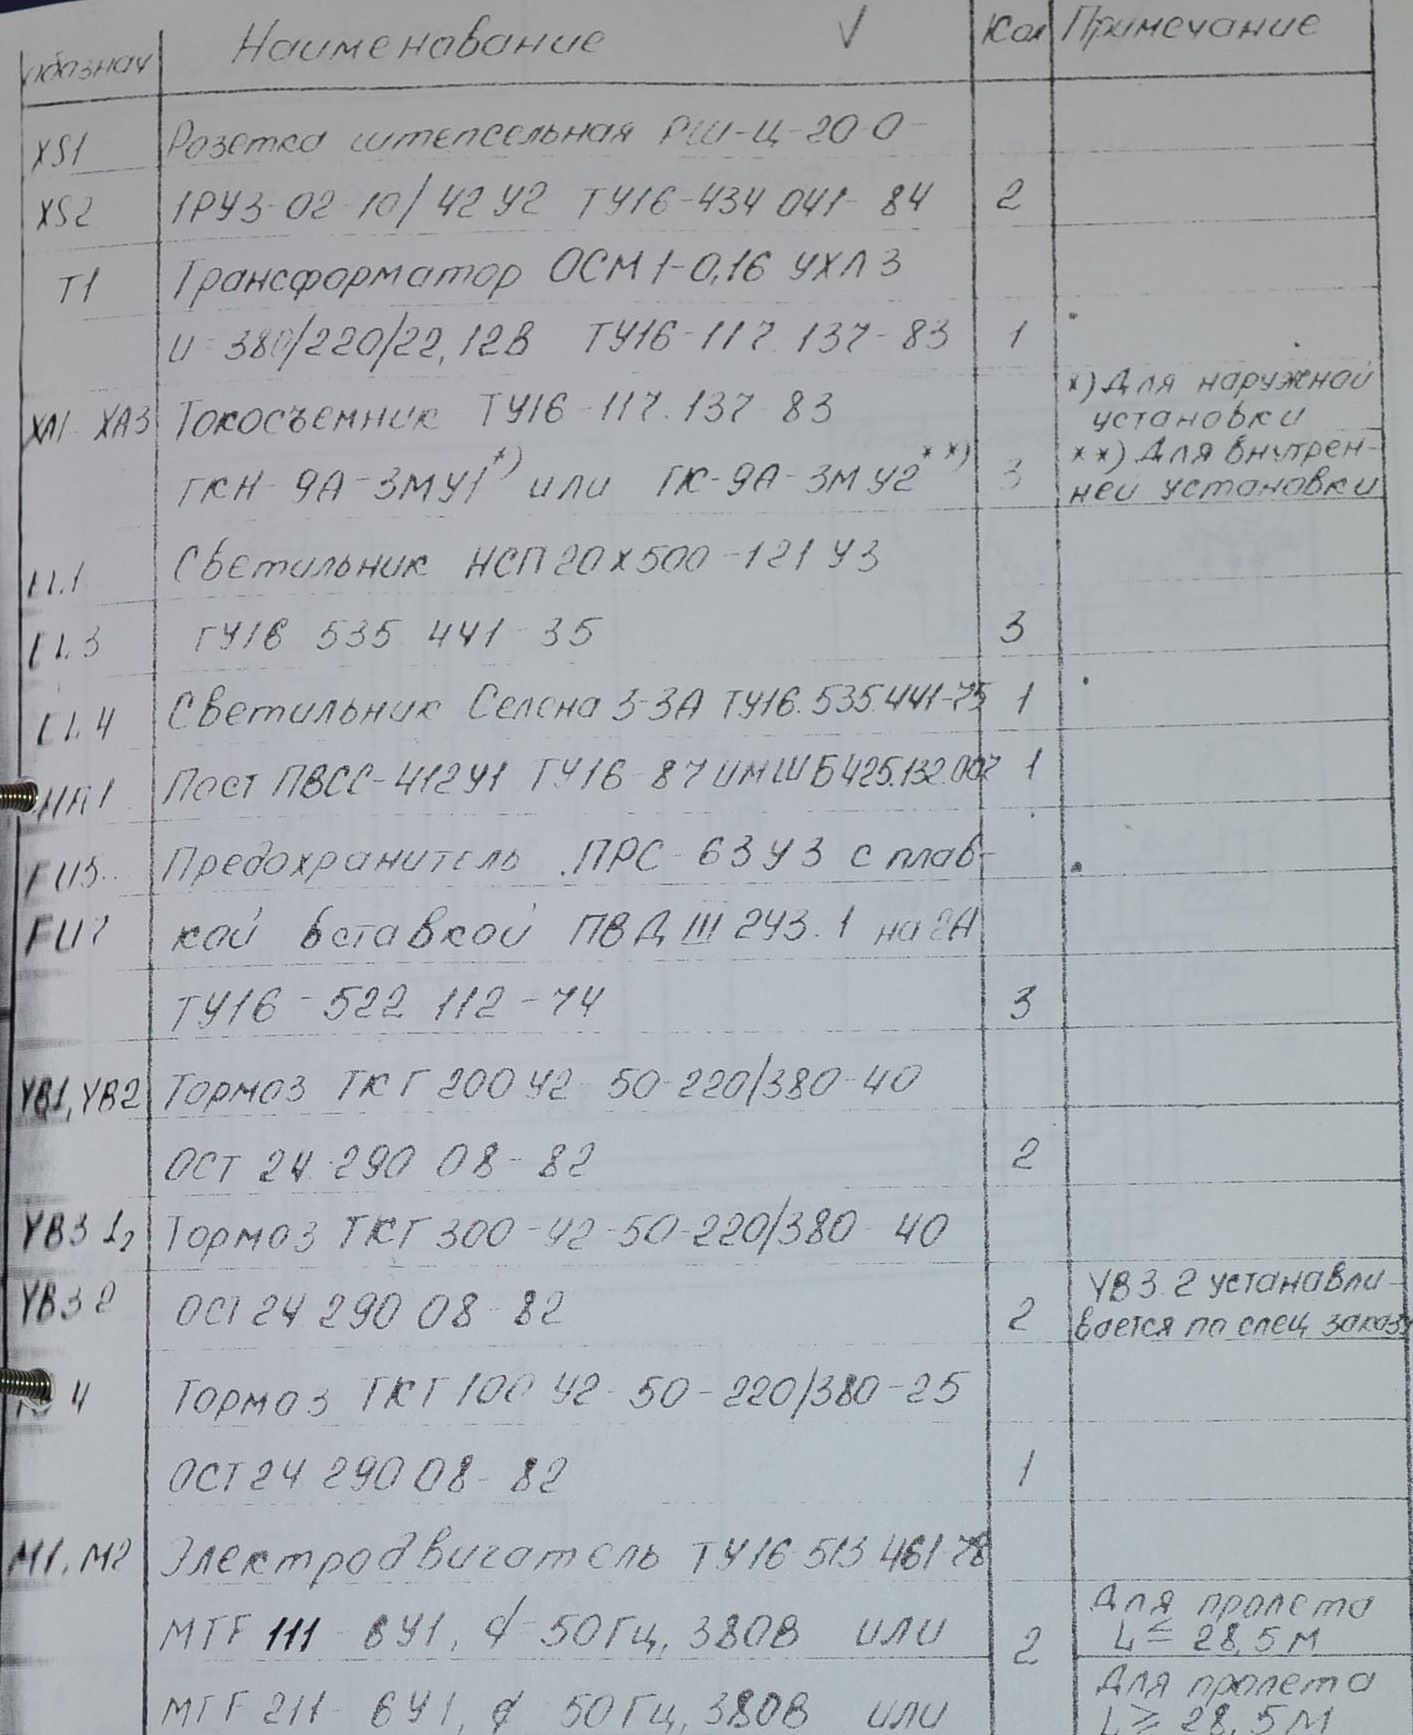 Обознач Наименование √ Кол Примечание
XS1 Розетка штепсельная РШ-Ц-20 0-
XS2 1РУ3-02-10/42 У2 ТУ16-434 041-84 2
Т1 Трансформатор ОСМ1-0,16 УХЛ3
U=380/220/22,12В ТУ16-117. 137-83 1
ХА1 ХА3 Токосъемник ТУ16-117.137-83
х) Для наружной
установки
ТКН-9А-3МУ1 х) или ТК-9А-3МУ2 хх) 3
хх) Для внутрен-
ней установки
EL1 Светильник НСП20х500-121 У3
EL3 ТУ16 535 441-35 3
EL4 Светильник Селена 3-3А ТУ16.535.441-75 1
НА1 Пост ПВСС-412У1 ТУ16-87 ИМШБ425.132.007 1
FU5 Предохранитель ПРС-63У3 с плав-
FU7 кой вставкой ПВД III 2У3.1 на 2А
ТУ16-522 112-74 3
YB1, YB2 Тормоз ТКГ 200 У2-50-220/380-40
ОСТ 24 290 08-82 2
YB3 1, Тормоз ТКГ 300-У2-50-220/380-40
YB3 2 ОСТ 24 290 08-82 2
YB3.2 устанавли-
вается по спец. заказу
4 Тормоз ТКГ 100 У2-50-220/380-25
ОСТ 24 290 08-82 1
М1, М2 Электродвигатель ТУ16 513 461-78
MTF 111-6У1, ɸ-50Гц, 380В или 2
Для пролета
L ≤ 28,5 м
MTF 211-6У1, ɸ 50Гц, 380В или
Для пролета
L ≥ 28,5 м